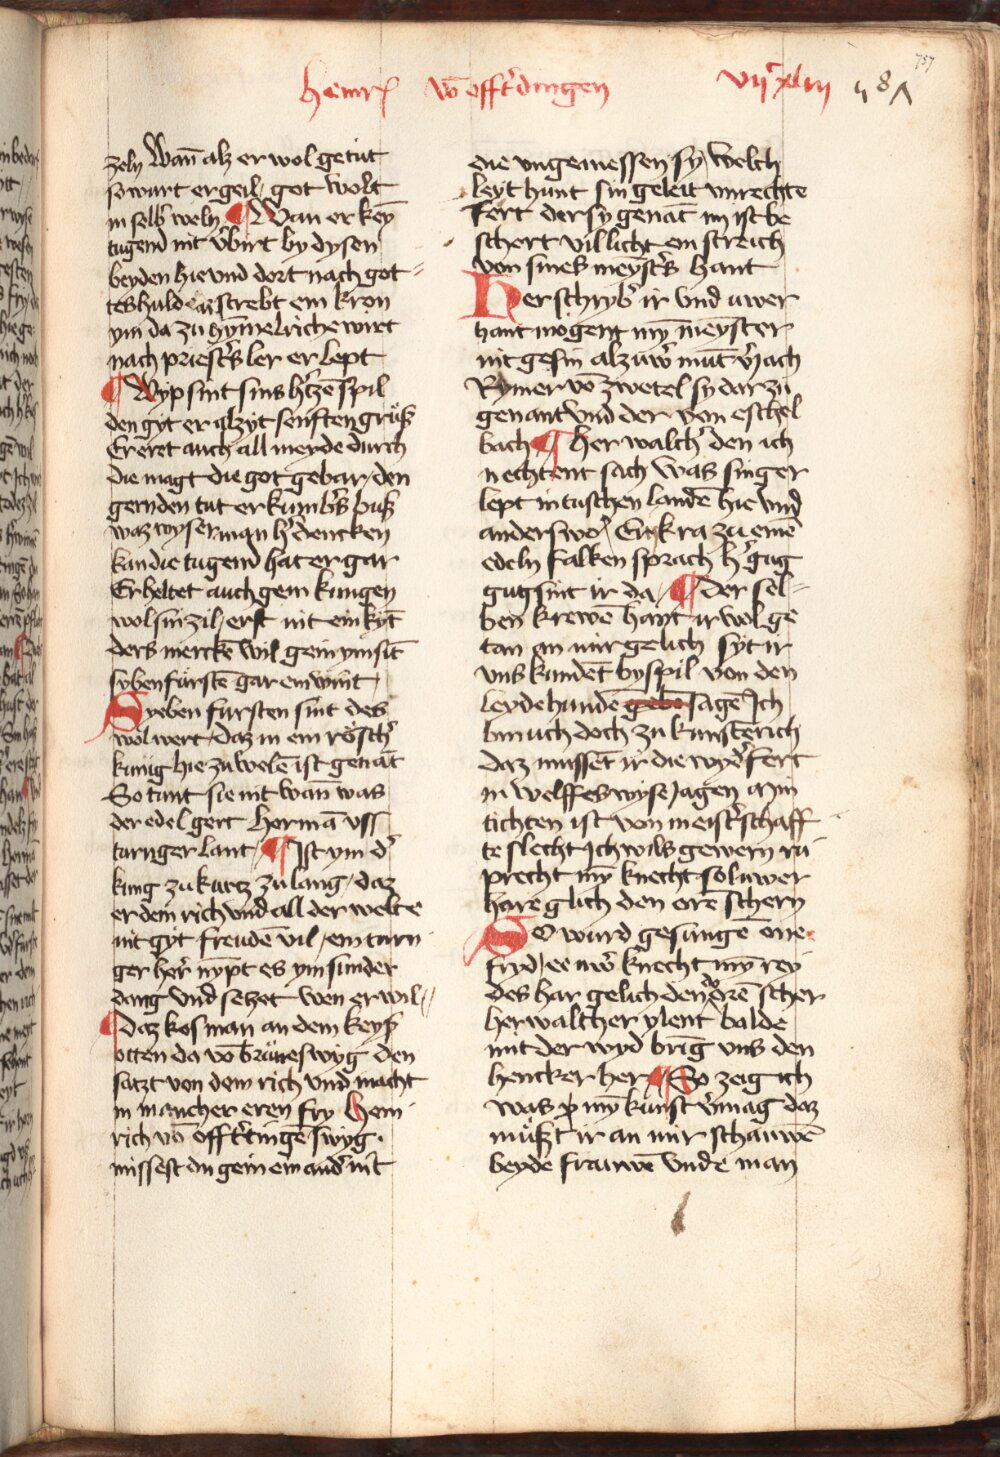 757
heinr̄ vō offt᷑dingen vijͨ xliij
zeln Wañ alz er wol getút
so wurt er geil / got wolt
in selb᷑ weln ¶ Wan er keȳ
tugend nit v᷑birt by dysen
beyden hie vnd dort nach got
tes huld er strebt ein kron
ym da zu hȳmelriche wirt
nach priest᷑s ler er lept
¶ Wyp sint sins h᷑tzē spil
den gyt er alzyt senften gruͦß
Er eret auch all merde durch
die magt die got gebar / den
gernden tut er kumb᷑s buß
waz wyser man h᷑ dencken
kan die tugend hat er gar
Er heltet auch gem kungen
wol sin zil / er ist nit ein kȳt
ders mercke wil gein ym sīt
syben fúrstē gar ein wint
Syeben fursten sint des
wol wert / daz in ein roͤsch᷑
kunig hie zu welē ist genāt
So tunt sie nit wañ was
der edel gert Hermā vsß
turnger lant / ¶ Ist ym d᷑
kung zu kurtz zu lang / daz
er dem rich vnd all der welte
nit gyt freudē vil / ein turn
ger her᷑ nȳpt es ym sunder
dang vnd setzet wen er wil
¶ daz kos man an dem keyß᷑
otten da vō brúneswyg den
satzt von dem rich vnd macht
in mancher eren fry Hein
rich vō offt᷑tingē swyg
missest du gein ein and᷑ nit
die vngemessen sy / Welch
leyt hunt sin geleit vnrechte
fert der sy genāt im ist be
schert vil licht ein streich
von sines meyst᷑s hant
Her schryb᷑ ir vnd uwer
hant mogent mȳ meyster
nit gesin alz uw᷑ mūt v᷑iach
Rymer vō zwetel sy dar zu
genant vnd der von eschel
bach ¶ her walth᷑ den ich
nechtent sach was singer
lept in tuschen lande hie vnd
anderswo / Ein kra zu einē
edeln falken sprach h᷑ gug
gug sint ir da / ¶ Der sel
ben krewē hant ir wol ge
tan an mir gelich syt ir
vns kundēt byspil von den
leydehundē sagē Ich
bin uch doch zu kunstērich
daz mussēt ir die wyd᷑fert
in welffes wyse Jagen a mī
tichten ist von meist᷑schaff
te slecht Ich wils gewern rú
precht mȳ knecht sol uwer
har e glich den orē schern
So wurd gesungē one
fryd / ee uw᷑ knecht mȳ rey
des har gelich den orē scher
her walther ylent balde
mit der wyd brīg vns den
hencker her ¶ So zeig ich
was mȳ kunst v᷑mag daz
muͤßt ir an mir schauwē
beyde frauwē vnde man